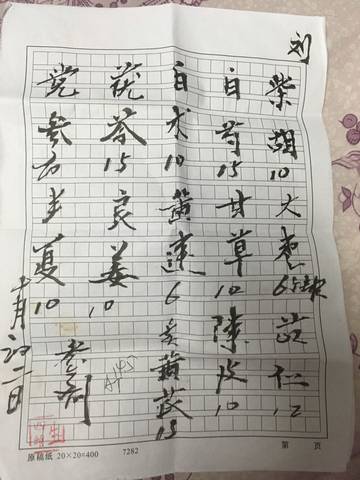 刘
柴胡10 大枣 苡仁12
白芍15 甘草10 陳皮10
白术10 黄連6 炙黄芪15
茯苓15 良姜10
党参 半夏10
剂
十月初二日
原稿纸 20×20=400 7282 第 页